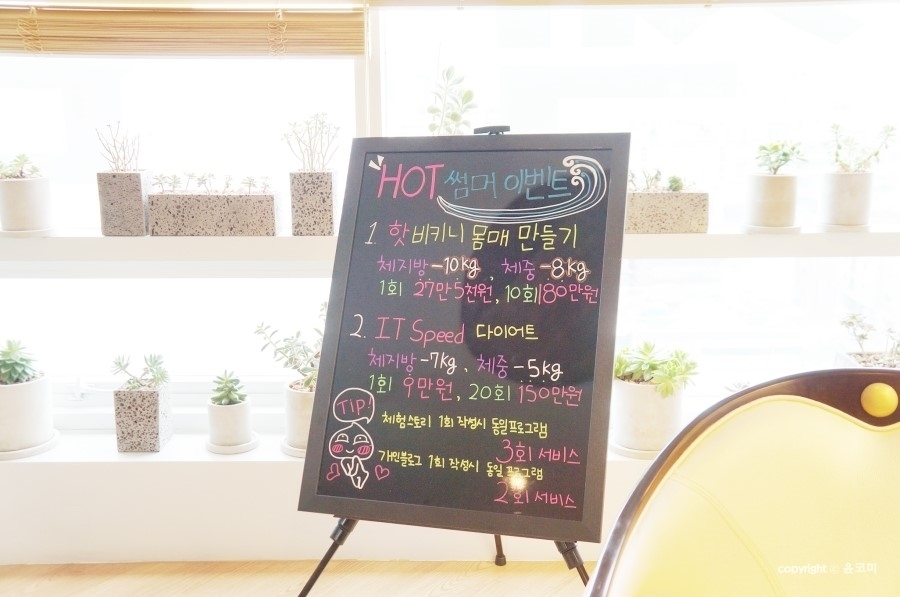 HOT 썸머 이벤트
1. 핫 비키니 몸매 만들기
체지방 -10kg, 체중 -8kg
1회 27만 5천원, 10회 180만원
2. IT Speed 다이어트
체지방 -7kg, 체중 -5kg
1회 9만원, 20회 150만원
Tip!
체험스토리 1회 작성시 동일프로그램
3회 서비스
개인블로그 1회 작성시 동일 프로그램
2회 서비스
copyright ⓒ 윤코미